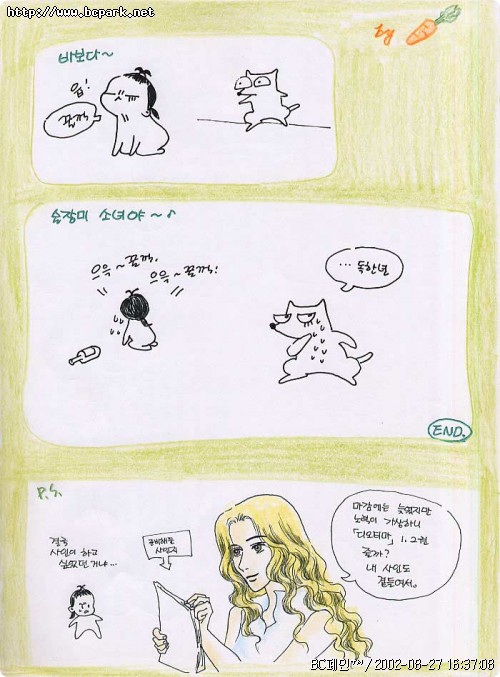 http://www.bcpark.net
by
바보다~
읍!
꿀꺽
슬장미 소녀야~♪
으윽~꿀꺽.
으윽~꿀꺽!
... 독한년
END.
P.S.
결국
사인이 하고
싶었던 거냐...
사인지
마감에는 늦었지만
노력이 가상하니
「디오티마」 1, 2권
줄까?
내 사인도
곁들여서.
BC페인™ / 2002-06-27 16:37:08